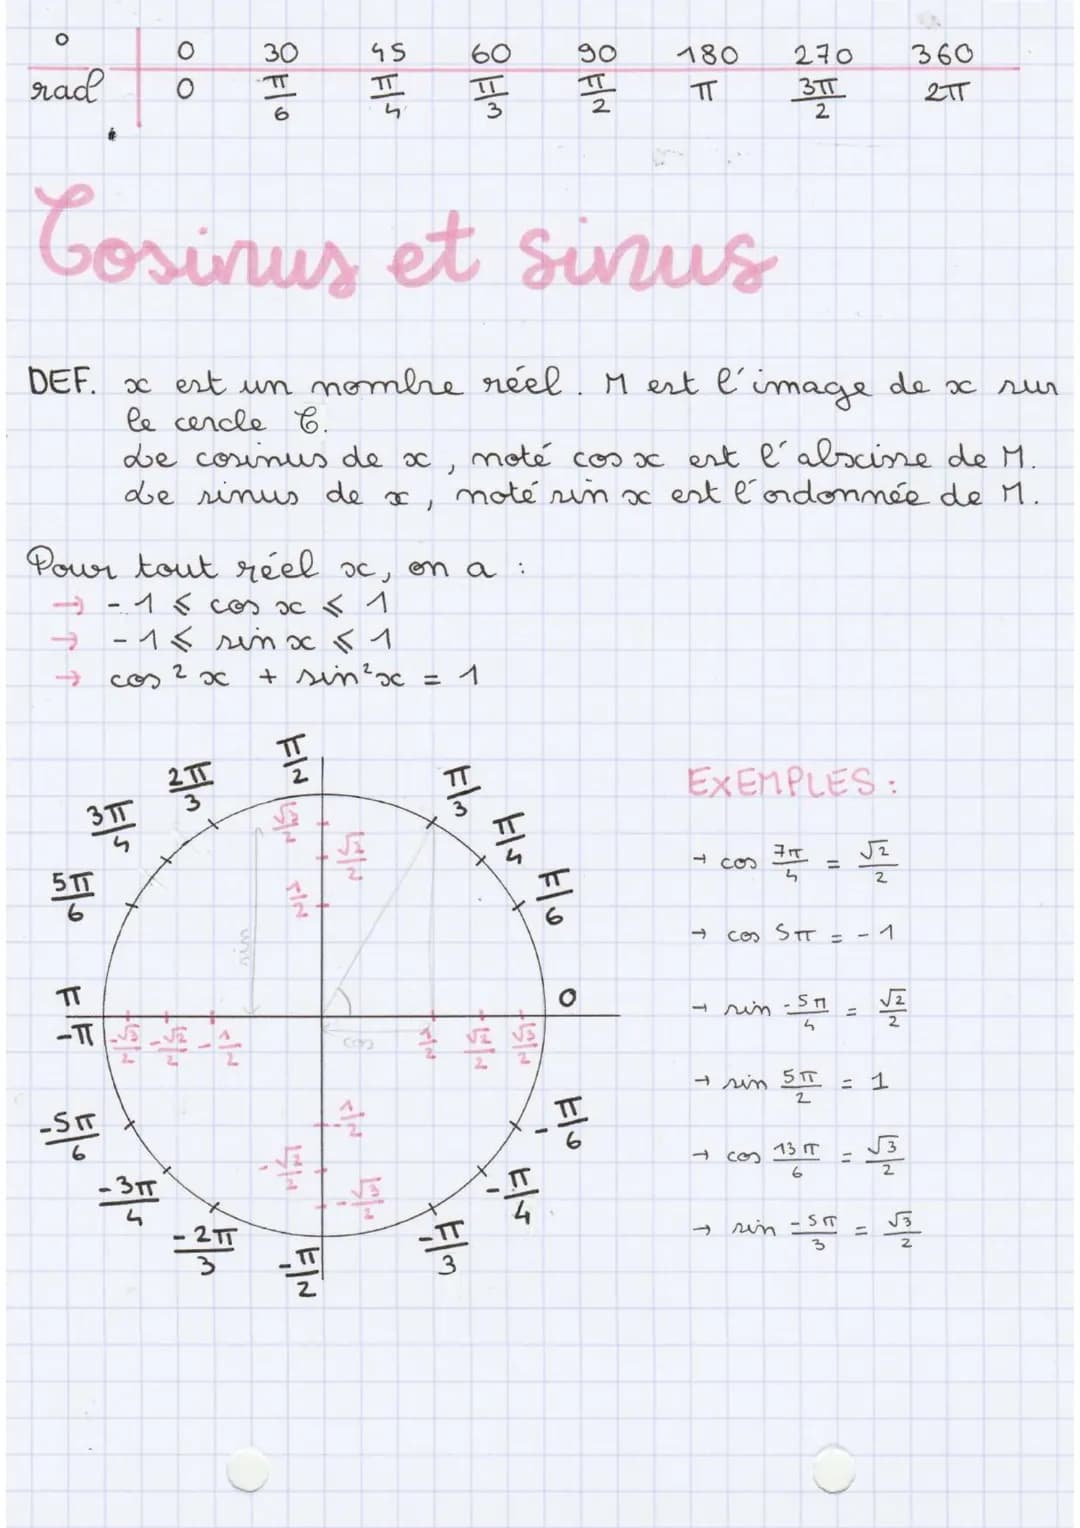 ° 0 30 45 60 90 180 270 360
rad 0 π/6 π/4 π/3 π/2 π 3π/2 2π
Cosinus et sinus
DEF. x est un nombre réel. M est l'image de x sur
le cercle C.
Le cosinus de x, noté cos x est l'abscisse de M.
Le sinus de x, noté sin x est l'ordonnée de M.
Pour tout réel x, on a :
→ -1 ⩽ cos x ⩽ 1
→ -1 ⩽ sin x ⩽ 1
→ cos² x + sin² x = 1
π/2
2π/3
π/3
3π/4
π/4
5π/6
π/6
√3/2
√2/2
1/2
sin
π
0
-π
-√3/2 -√2/2 -1/2
cos
1/2 √2/2 √3/2
-1/2
-√2/2
-√3/2
-5π/6
-π/6
-3π/4
-π/4
-2π/3
-π/3
-π/2
EXEMPLES :
→ cos 7π/4 = √2/2
→ cos 5π = -1
→ sin -5π/4 = √2/2
→ sin 5π/2 = 1
→ cos 13π/6 = √3/2
→ sin -5π/3 = √3/2